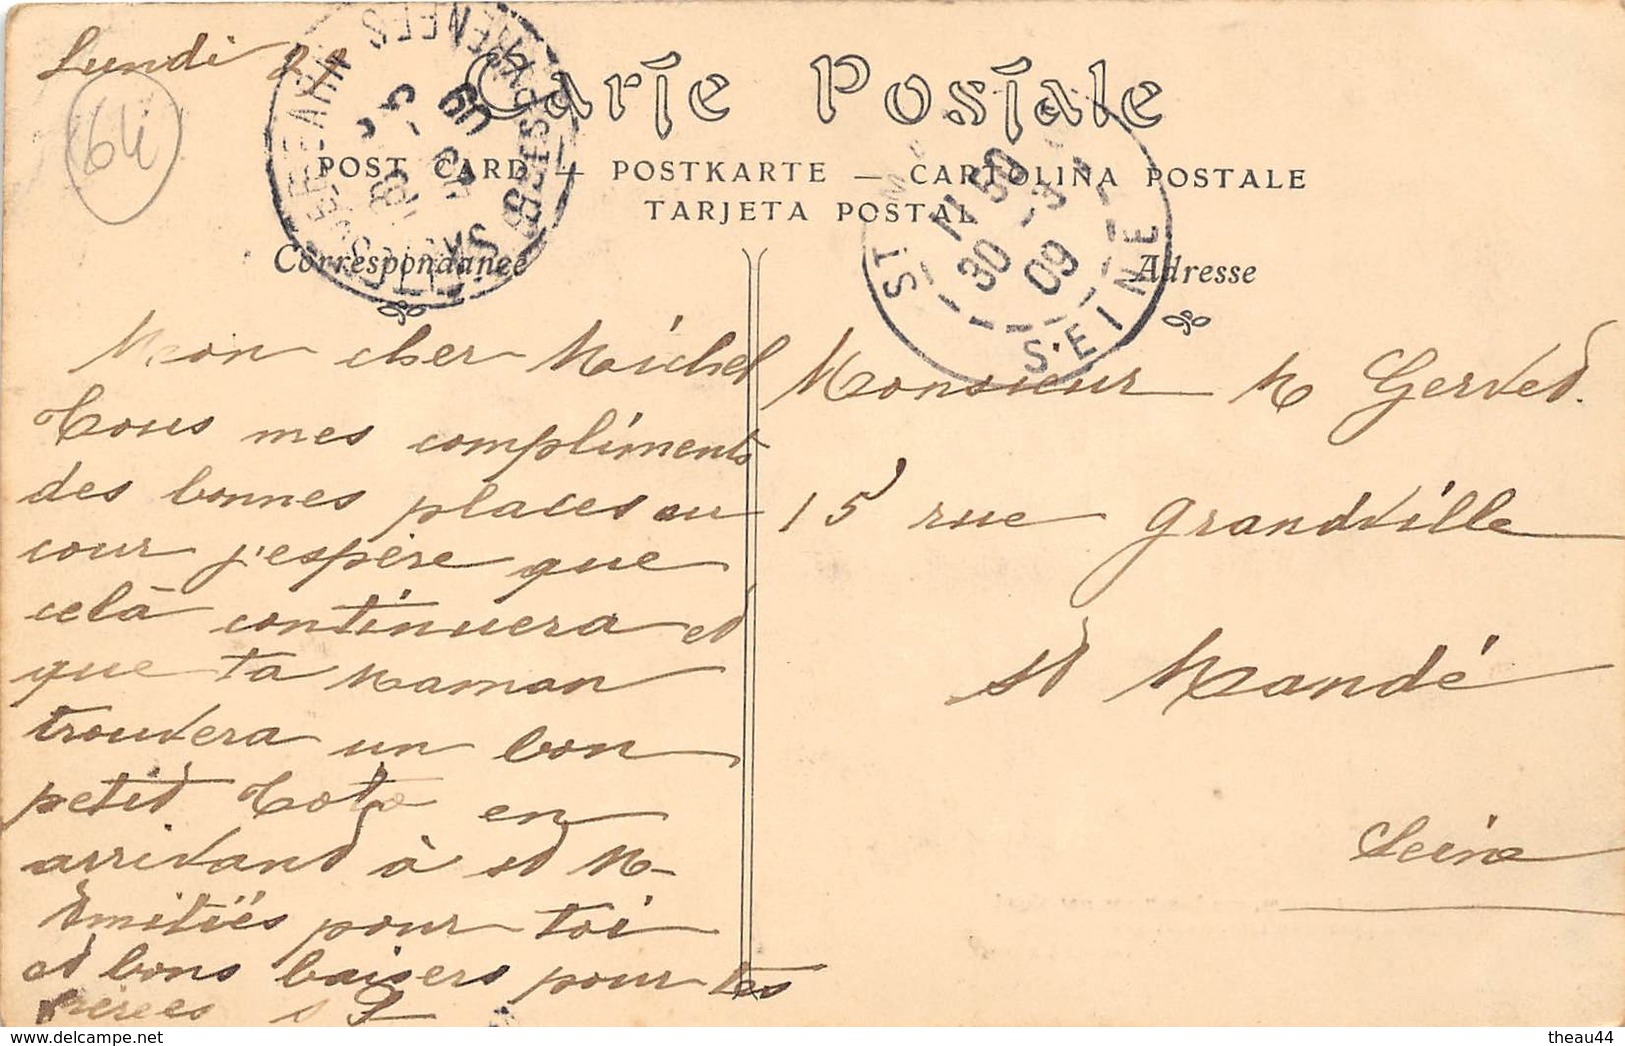 Lundi
64
Carte Postale
POST CARD — POSTKARTE — CARTOLINA POSTALE
TARJETA POSTAL
SALIES DE BEARN
BSES PYRENEES
09
ST M
11 50
30 - 3
09
SEINE
Correspondance
Adresse
Mon cher Michel
Tous mes compliments
des bonnes places au
cour j'espère que
celà continuera et
que ta Maman
trouvera un bon
petit Toto en
arrivant à st M-
Amitiés pour toi
et bons baisers pour tes
frères
Monsieur M Gervet.
15 rue Grandville
st Mandé
Seine
www.delcampe.net
theau44